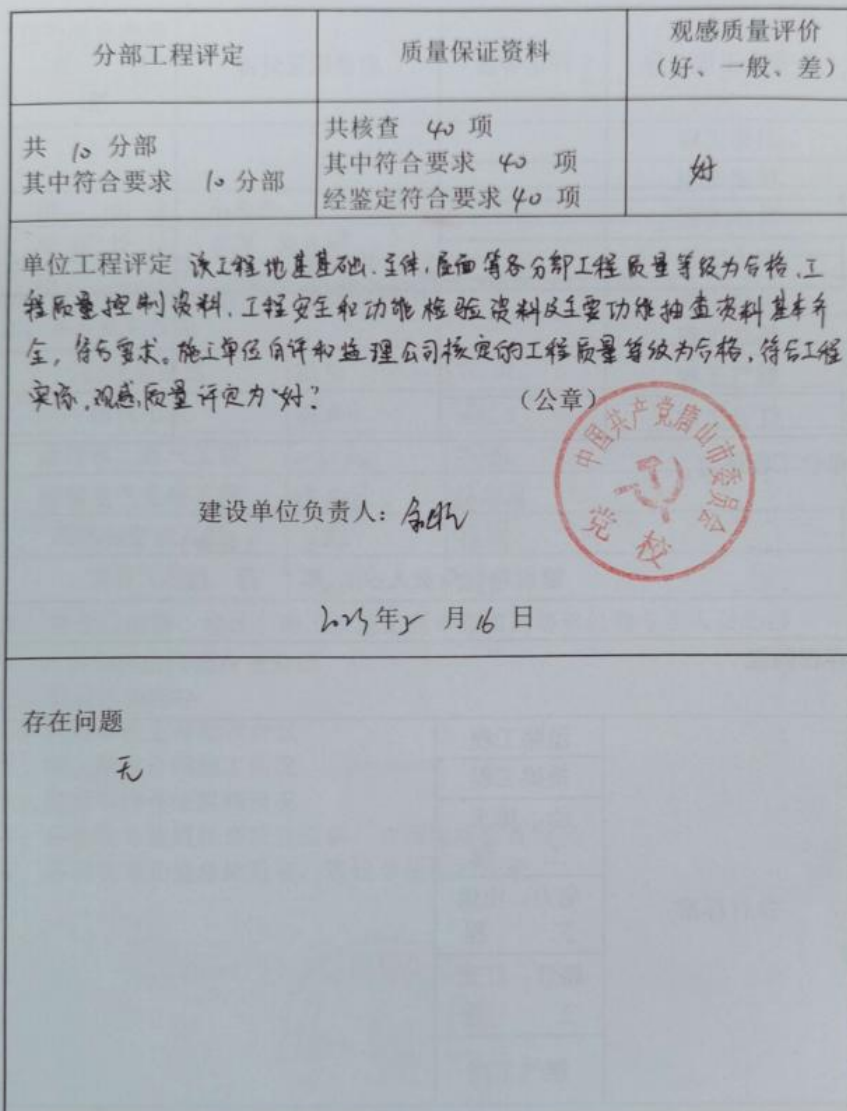 分部工程评定
质量保证资料
观感质量评价
（好、一般、差）
共 10 分部
其中符合要求 10 分部
共核查 40 项
其中符合要求 40 项
经鉴定符合要求 40 项
好
单位工程评定 该工程地基基础、主体、屋面等各分部工程质量等级为合格、工
程质量控制资料、工程安全和功能检验资料及主要功能抽查资料基本齐
全，符合要求。施工单位自评和监理公司核定的工程质量等级为合格，符合工程
实际，观感质量评定为“好”。
（公章）
中国共产党唐山市委员会
党校
建设单位负责人：
2023年5月16日
存在问题
无